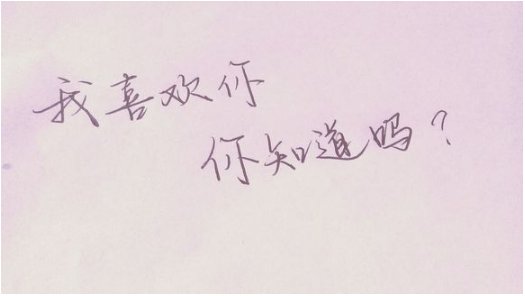 我喜欢你
你知道吗?